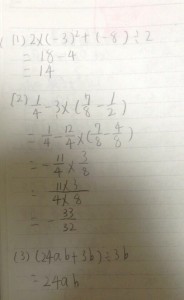 (1) 2×(-3)²+(-8)÷2
= 18-4
= 14
(2) 1/4 - 3×(7/8 - 1/2)
= 1/4 - 12/4 ×(7/8 - 4/8)
= - 11/4 × 3/8
= 11×3/4×8
= - 33/32
(3) (24ab+3b)÷3b
= 24ab